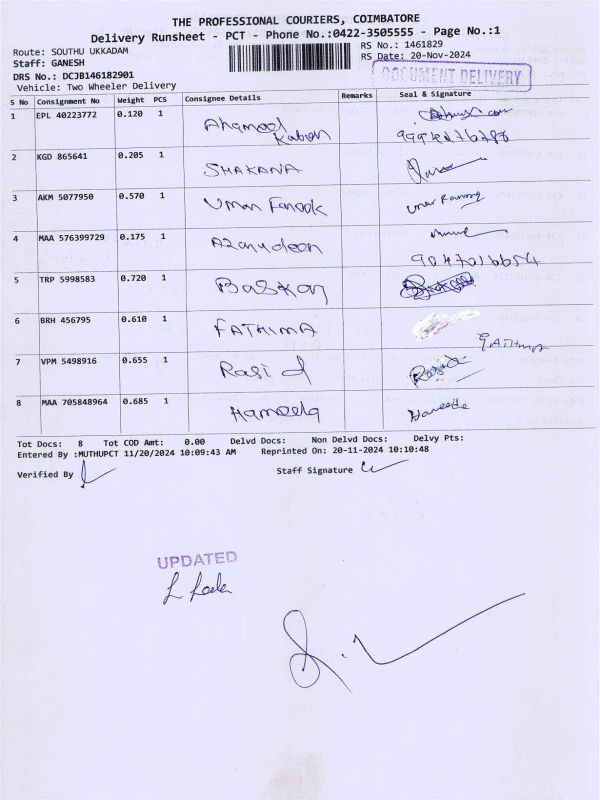 THE PROFESSIONAL COURIERS, COIMBATORE
Delivery Runsheet - PCT - Phone No.:0422-3505555 - Page No.:1
Route: SOUTHU UKKADAM
RS No.: 1461829
Staff: GANESH
RS Date: 20-Nov-2024
DRS No.: DCJB146182901
DOCUMENT DELIVERY
Vehicle: Two Wheeler Delivery
S No Consignment No Weight PCS Consignee Details Remarks Seal & Signature
1 EPL 40223772 0.120 1 Ahamed
2 KGD 865641 0.205 1 SHAKANA
3 AKM 5077950 0.570 1 Umar Farook
4 MAA 576399729 0.175 1 Azarudeen
5 TRP 5998583 0.720 1 Baskar
6 BRH 456795 0.610 1 FATHIMA
7 VPM 5498916 0.655 1 Rasid
8 MAA 705848964 0.685 1 Hameeda
Tot Docs: 8 Tot COD Amt: 0.00 Delvd Docs: Non Delvd Docs: Delvy Pts:
Entered By :MUTHUPCT 11/20/2024 10:09:43 AM Reprinted On: 20-11-2024 10:10:48
Verified By Staff Signature
UPDATED